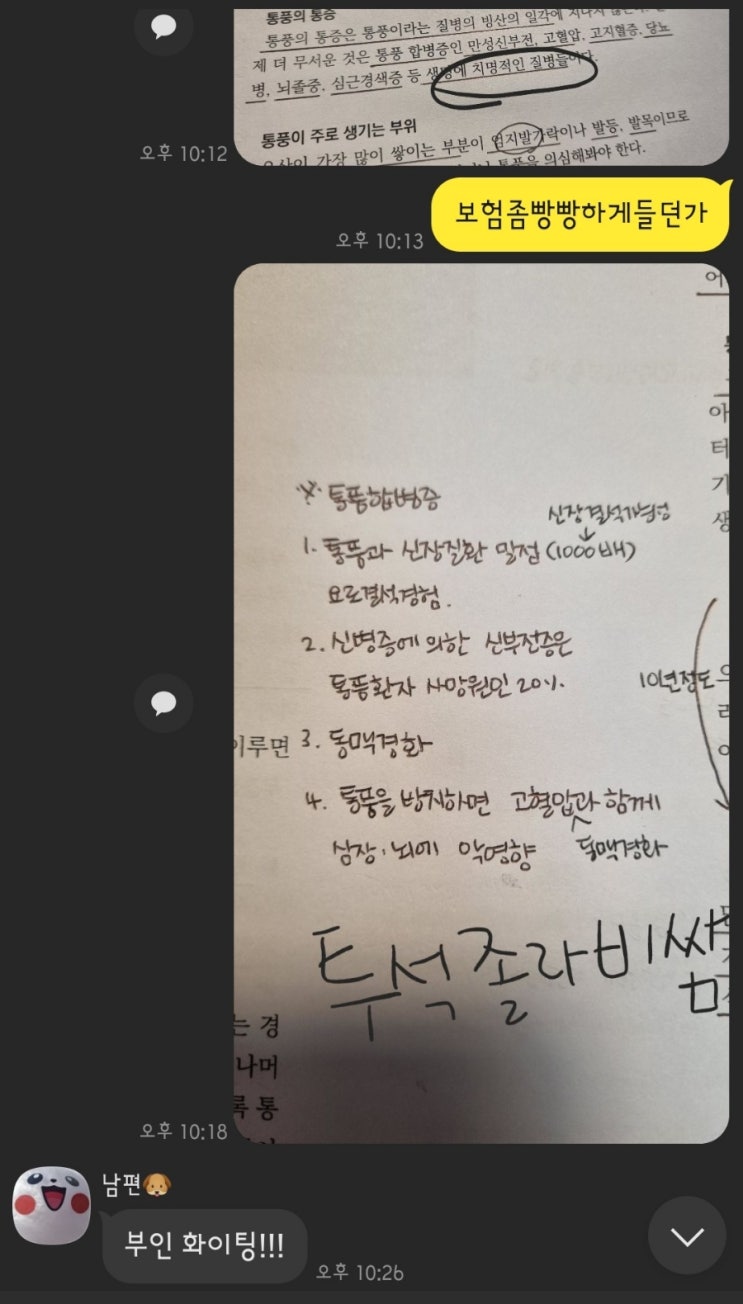 통풍의 통증
통풍의 통증은 통풍이라는 질병의 빙산의 일각에 지나지
제 더 무서운 것은 통풍 합병증인 만성신부전, 고혈압, 고지혈증, 당뇨
병, 뇌졸중, 심근경색증 등 생명에 치명적인 질병들이다.
통풍이 주로 생기는 부위
요산이 가장 많이 쌓이는 부분이 엄지발가락이나 발등, 발목이므로
통풍을 의심해봐야 한다.
오후 10:12
보험좀빵빵하게들던가
오후 10:13
어
아
터
기
생
※ 통풍합병증
신장결석가능성
↓
1. 통풍과 신장질환 말접 (1000배)
요로결석경험.
2. 신병증에 의한 신부전증은
통풍환자 사망원인 20%.
10년정도
이루면
3. 동맥경화
4. 통풍을 방치하면 고혈압과 함께
심장, 뇌에 악영향
동맥경화
투석졸라비쌈
는 경
나머
록 통
오후 10:18
남편🐶
부인 화이팅!!!
오후 10:26